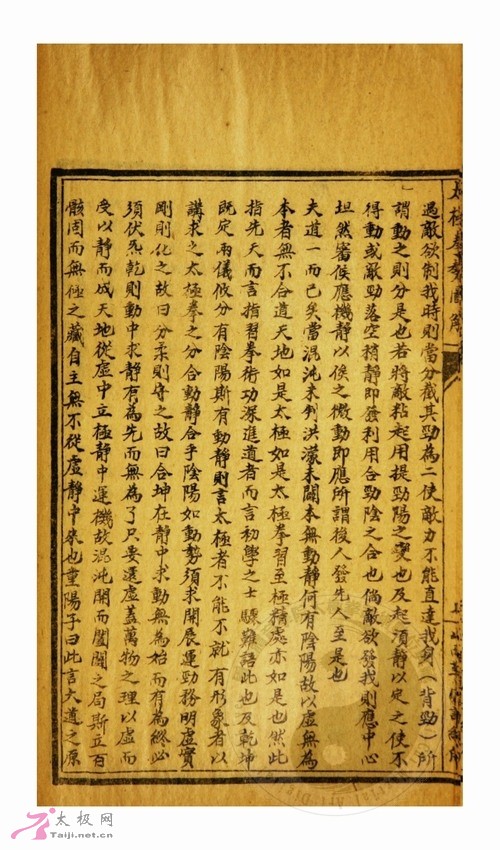 遇敵欲制我時則當分截其勁為二使敵力不能直達我身(背勁)所
謂動之則分是也若將敵粘起用提勁陽之變也及起須靜以定之使不
得動或敵勁落空稍靜即發利用合勁陰之合也倘敵欲發我則應中心
坦然審候應機靜以俟之微動即應所謂後人發先人至是也
夫道一而已矣當混沌未判洪濛未闢本無動靜何有陰陽故以虛無為
本者無不合道天地如是太極如是太極拳習至極精處亦如是也然此
指先天而言指習拳術功深進道者而言初學之士驟難語此也及乾坤
既定兩儀攸分有陰陽斯有動靜則言太極者不能不就有形象者以
講求之太極拳之分合動靜合乎陰陽如動勢須求開展運勁務明虛實
剛則化之故曰分柔則守之故曰合坤在靜中求動無為始而有為終必
須伏炁乾則動中求靜有為先而無為了只要還虛蓋萬物之理以虛而
受以靜而成天地從虛中立極靜中運機故混沌開而闔闢之局斯立百
骸固而無極之藏自主無不從虛靜中來也重陽子曰此言大道之原
太極网
Taiji.net.cn